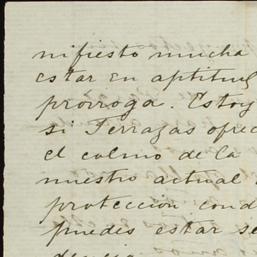 nifiesto mucha
estar en aptitud
prórroga. Estoy
si Terrazas ofrec
el colmo de la
nuestro actual
protección cond
puedes estar se